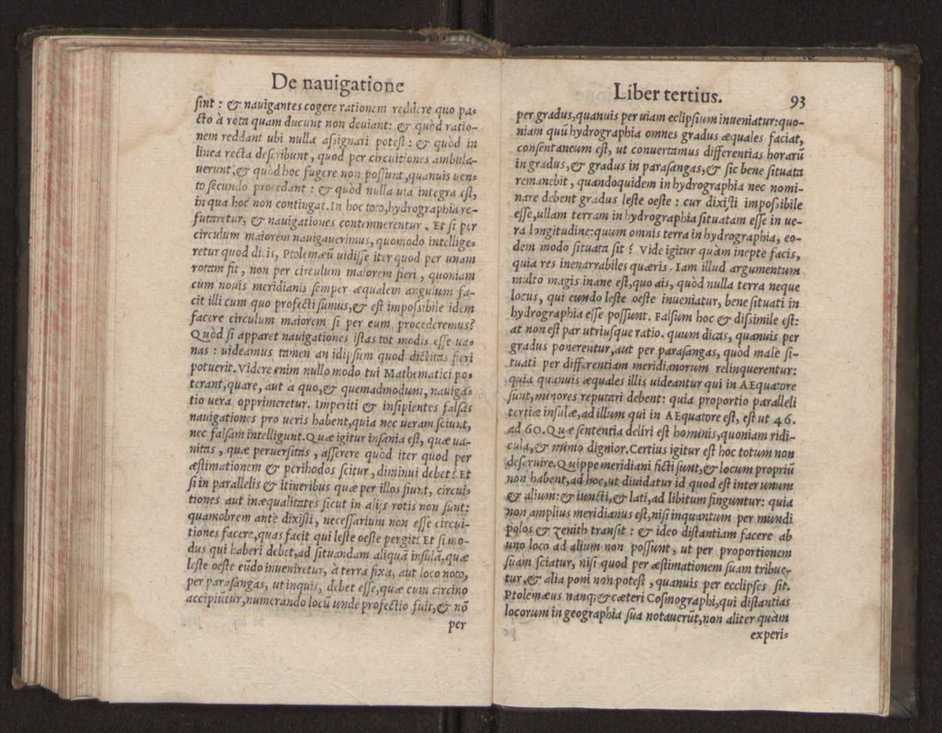 De nauigatione
sint : & nauigantes cogere rationem reddere quo pa-
cto à rota quam ducunt non deuiant: & quòd ratio-
nem reddant ubi nulla assignari potest : & quòd in
linea recta describunt, quod per circuitiones ambula-
uerunt, & quòd hoc fugere non possunt, quanuis uen-
to secundo procedant : & quòd nulla uia integra est,
in qua hoc non contingat. In hoc toto, hydrographia re-
futaretur, & nauigationes contemnerentur. Et si per
circulum maiorem nauigauerimus, quomodo intellige-
retur quod dicis, Ptolemæū uidisse iter quod per unam
rotam fit, non per circulum maiorem fieri, quoniam
cum nouis meridianis semper æqualem angulum fa-
cit illi cum quo profecti sumus, & est impossibile idem
facere circulum maiorem si per eum procederemus?
Quòd si apparet nauigationes istas tot modis esse ua-
nas : uideamus tamen an id ipsum quod dictitas fieri
potuerit. Videre enim nullo modo tui Mathematici po-
terant, quare, aut à quo, & quemadmodum, nauiga-
tio uera opprimeretur. Imperiti & insipientes falsas
nauigationes pro ueris habent, quia nec ueram sciunt,
nec falsam intelligunt. Quæ igitur insania est, quæ ua-
nitas, quæ peruersitas, asserere quòd iter quod per
æstimationem & perihodos scitur, diminui debet? Et
si in parallelis & itineribus quæ per illos fiunt, circui-
tiones aut inæqualitates sicut in alijs rotis non sunt:
quamobrem antè dixisti, necessarium non esse circui-
tiones facere, quas facit qui leste oeste pergit? Et si mo-
dus qui haberi debet, ad situandam aliquā insulā, quæ
leste oeste eūdo inueniretur, à terra fixa, aut loco noto,
per parasangas, ut inquis, debet esse, quæ cum circino
accipiūtur, numerando locū unde profectio fuit, & nō
per
Liber tertius. 93
per gradus, quanuis per uiam eclipsium inueniatur: quo-
niam quū hydrographia omnes gradus æquales faciat,
consentaneum est, ut conuertamus differentias horarū
in gradus, & gradus in parasangas, & sic bene situata
remanebit, quandoquidem in hydrographia nec nomi-
nare debent gradus leste oeste : cur dixisti impossibile
esse, ullam terram in hydrographia situatam esse in ue-
ra longitudine: quum omnis terra in hydrographia, eo-
dem modo situata sit? Vide igitur quàm ineptè facis,
quia res inenarrabiles quæris. Iam illud argumentum
multo magis inane est, quo ais, quòd nulla terra neque
locus, qui eundo leste oeste inueniatur, bene situati in
hydrographia esse possunt. Falsum hoc & dissimile est:
at non est par utriusque ratio. quum dicas, quanuis per
gradus ponerentur, aut per parasangas, quòd male si-
tuati per differentiam meridianorum relinquerentur:
quia quanuis æquales illis uideantur qui in AEquatore
sunt, minores reputari debent: quia proportio paralleli
tertiæ insulæ, ad illum qui in AEquatore est, est ut 46.
ad 60. Quæ sententia deliri est hominis, quoniam ridi-
cula, & mimo dignior. Certius igitur est hoc totum non
deseruire. Quippe meridiani ficti sunt, & locum propriū
non habent, ad hoc, ut diuidatur id quod est inter unum
& alium: & iuncti, & lati, ad libitum finguntur: quia
non amplius meridianus est, nisi inquantum per mundi
polos & zenith transit : & ideo distantiam facere ab
uno loco ad alium non possunt, ut per proportionem
suam sciatur, nisi quod per æstimationem suam tribue-
tur, & alia poni non potest, quanuis per ecclipses sit.
Ptolemæus nanq; & cæteri Cosmographi, qui distantias
locorum in geographia sua notauerūt, non aliter quàm
experi-